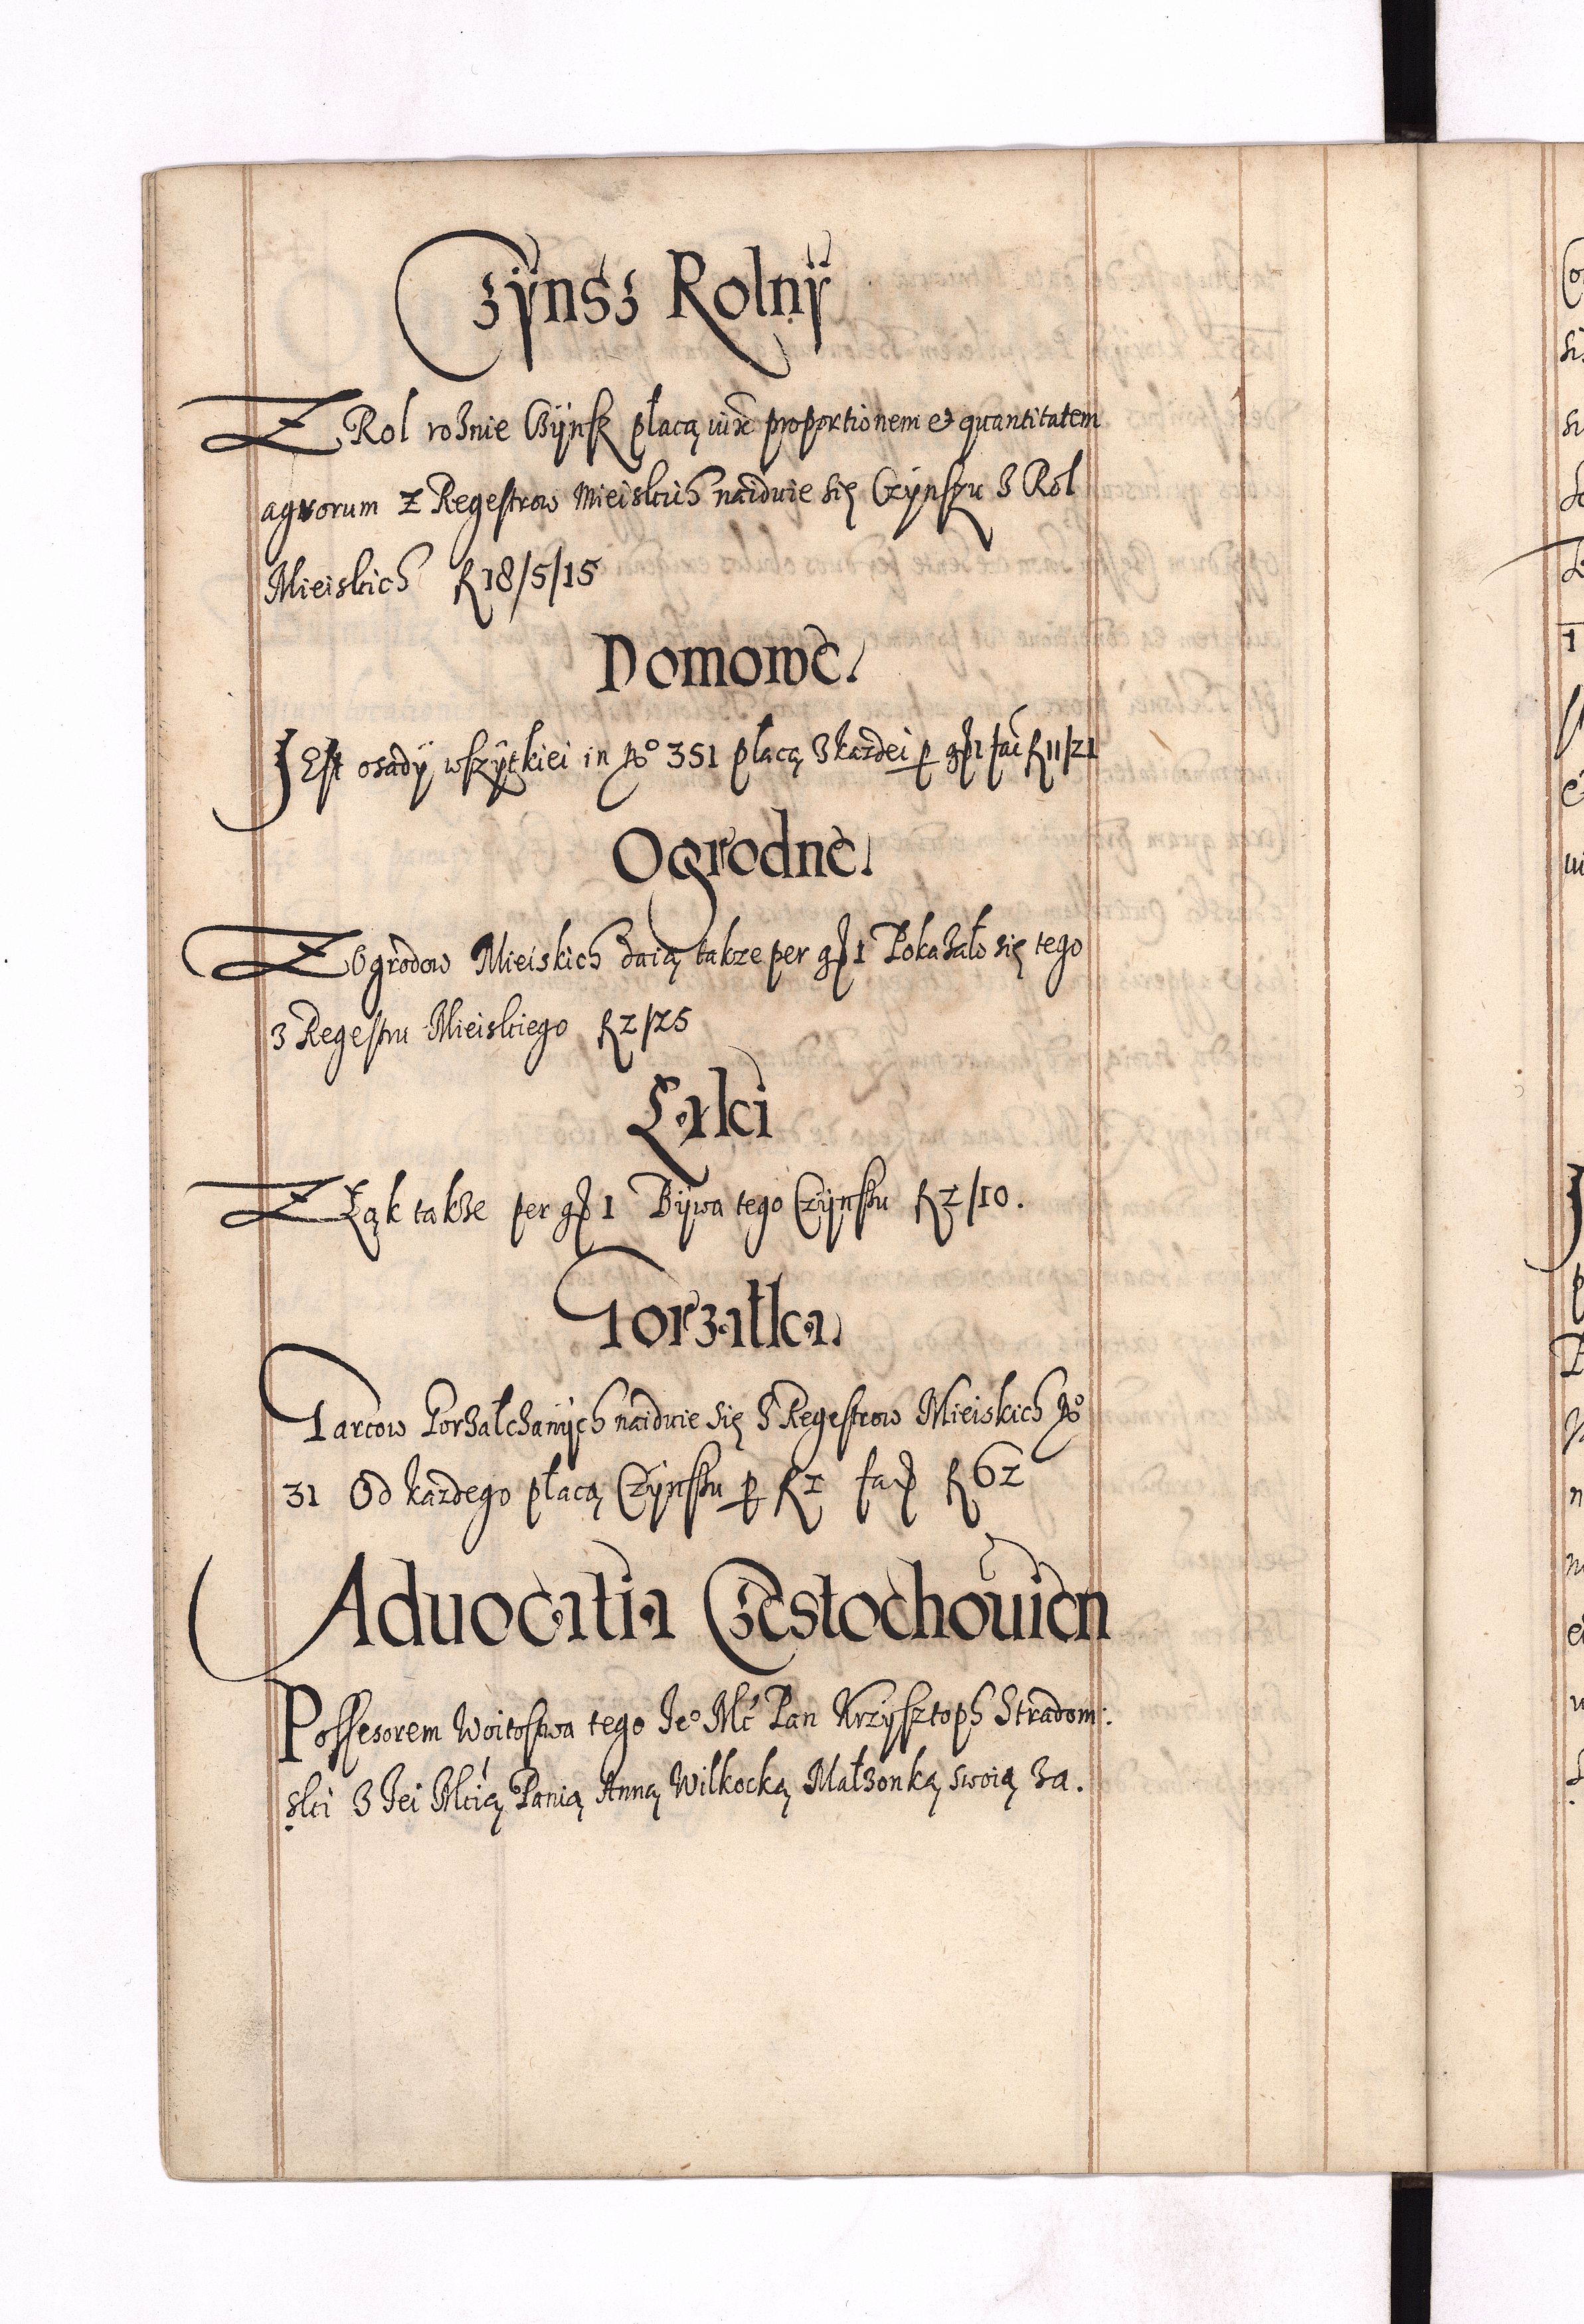 Czÿnsz Rolnÿ
Z Rol rożnie Czÿnsz płacą iuxta proportionem et quantitatem
agrorum z Regestrow Mieiskich naiduie się Czÿnszu z Rol
Mieiskich fl 18/5/15
Domowe.
Jest osadÿ wszÿtkiei in No 351 płacą z każdei per gr 1 faci fl 11/21
Ogrodne.
Z Ogrodow Mieiskich daią takze per gr 1 Pokazało się tego
z Regestru Mieiskiego fl 2/25
Łąki
Z Łąk także per gr 1 Bÿwa tego Czÿnszu fl 2/10.
Gorzałka.
Garcow Gorzałczanÿch naiduie się z Regestrow Mieiskich No
31 Od każdego płacą Czÿnszu per fl 2 faci fl 62
Aduocatia Częstochouien
Possesorem Woitostwa tego Jeo Mć Pan Krzÿsztoph Stradom:
ski z Jei Mcią Panią Anną Wilkocką Małżonką swoią za.